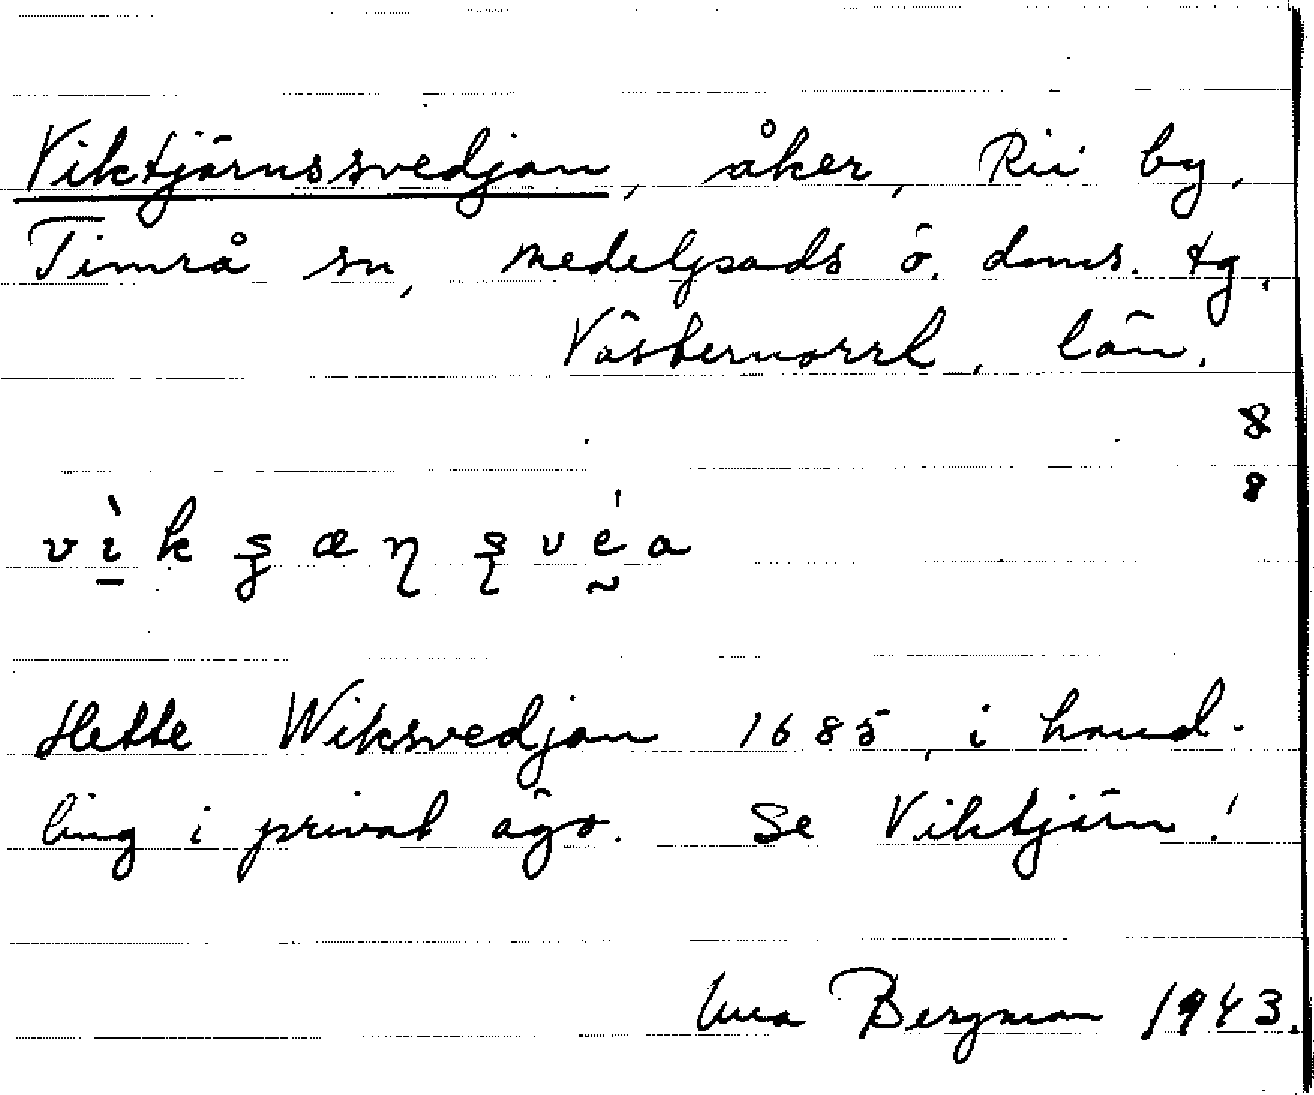 Viktjärnssvedjan, åker, Rii by,
Timrå sn, Medelpads ö. doms. tg.
Västernorrl. län.
8
8
vìk ʂæɳ ʂvéa
Hette Wiksvedjan 1685, i hand-
ling i privat ägo. Se Viktjärn!
Bergman 1943.